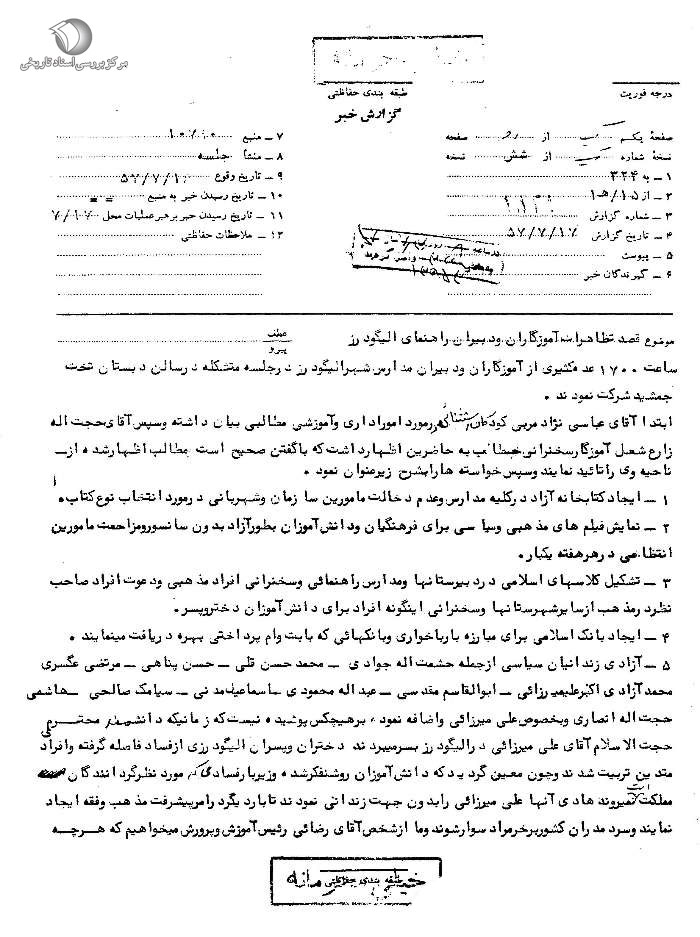 مرکز بررسی اسناد تاریخی
درجه فوریت
طبقه بندی حفاظتی
گزارش خبر
صفحهٔ یکم از دو صفحه
نسخهٔ شماره یک از شش نسخه
۱ ــ به ۳۲۴
۲ ــ از ۱۵/هـ۱
۳ ــ شماره گزارش
۴ ــ تاریخ گزارش ۵۷/۷/۱۷
۵ ــ پیوست
۶ ــ گیرندگان خبر
۷ ــ منبع
۸ ــ منشأ جلسه
۹ ــ تاریخ وقوع ۵۷/۷/۱۰
۱۰ ــ تاریخ رسیدن خبر به منبع
۱۱ ــ تاریخ رسیدن خبر برهبر عملیات محل ۷/۱۷
۱۲ ــ ملاحظات حفاظتی
موضوع قصد تظاهرات آموزگاران ودبیران راهنمای الیگودرز
عطف
پیرو
ساعت ۱۷۰۰ عده کثیری از آموزگاران ودبیران مدارس شهرالیگودرز درجلسه متشکله درسالن دبستان تخت
جمشید شرکت نمودند .
ابتدا آقای عباسی نژاد مربی کودکان استثنائی که درمورد اموراداری وآموزشی مطالبی بیان داشته وسپس آقای حجت اله
زارع شغل آموزگارسخنرانی خطاب به حاضرین اظهارداشت که باگفتن صحیح است مطالب اظهارشده از
ناحیه وی راتائید نمایند وسپس خواسته هارابشرح زیرعنوان نمود .
۱ ــ ایجاد کتابخانه آزاد درکلیه مدارس وعدم دخالت مامورین سازمان وشهربانی درمورد انتخاب نوع کتاب.
۲ ــ نمایش فیلم های مذهبی وسیاسی برای فرهنگیان ودانش آموزان بطورآزاد بدون سانسورومزاحمت مامورین
انتظامی درهرهفته یکبار.
۳ ــ تشکیل کلاسهای اسلامی دردبیرستانها ومدارس راهنمائی وسخنرانی افراد مذهبی ودعوت افراد صاحب
نظردرمذهب ازسایرشهرستانها وسخنرانی اینگونه افراد برای دانش آموزان دختروپسر.
۴ ــ ایجاد بانک اسلامی برای مبارزه بارباخواری وبانکهائی که بابت وام پرداختی بهره دریافت مینمایند .
۵ ــ آزادی زندانیان سیاسی ازجمله حشمت اله جوادی ــ محمد حسن قلی ــ حسن پناهی ــ مرتضی عگسری
محمدآزادی اکبرعلیمیرزائی ــ ابوالقاسم مقدسی ــ عبداله محمودی ــ اسماعیل مدنی ــ سیامک صالحی ــ هاشمی
حجت اله انصاری وبخصوص علی میرزائی واضافه نمود ، برهیچکس پوشیده نیست که زمانیکه دانشمند محترم
حجت الاسلام آقای علی میرزائی درالیگودرز بسرمیبردند دختران وپسران الیگودرزی ازفساد فاصله گرفته وافراد
متدین تربیت شدند وچون معین گردید که دانش آموزان روشنفکرشده وزیربارفسادی که مورد نظرگردانندگان
مملکت است نمیروند هادی آنها علی میرزائی رابدون جهت زندانی نمودند تابارد یگرد رامرپیشرفت مذهب وقفه ایجاد
نمایند وسردمداران کشوربرخرمراد سوارشوند وما ازشخص آقای رضائی رئیس آموزش وپرورش میخواهیم که هرچه
طبقه بندی حفاظتی
خیلی محرمانه